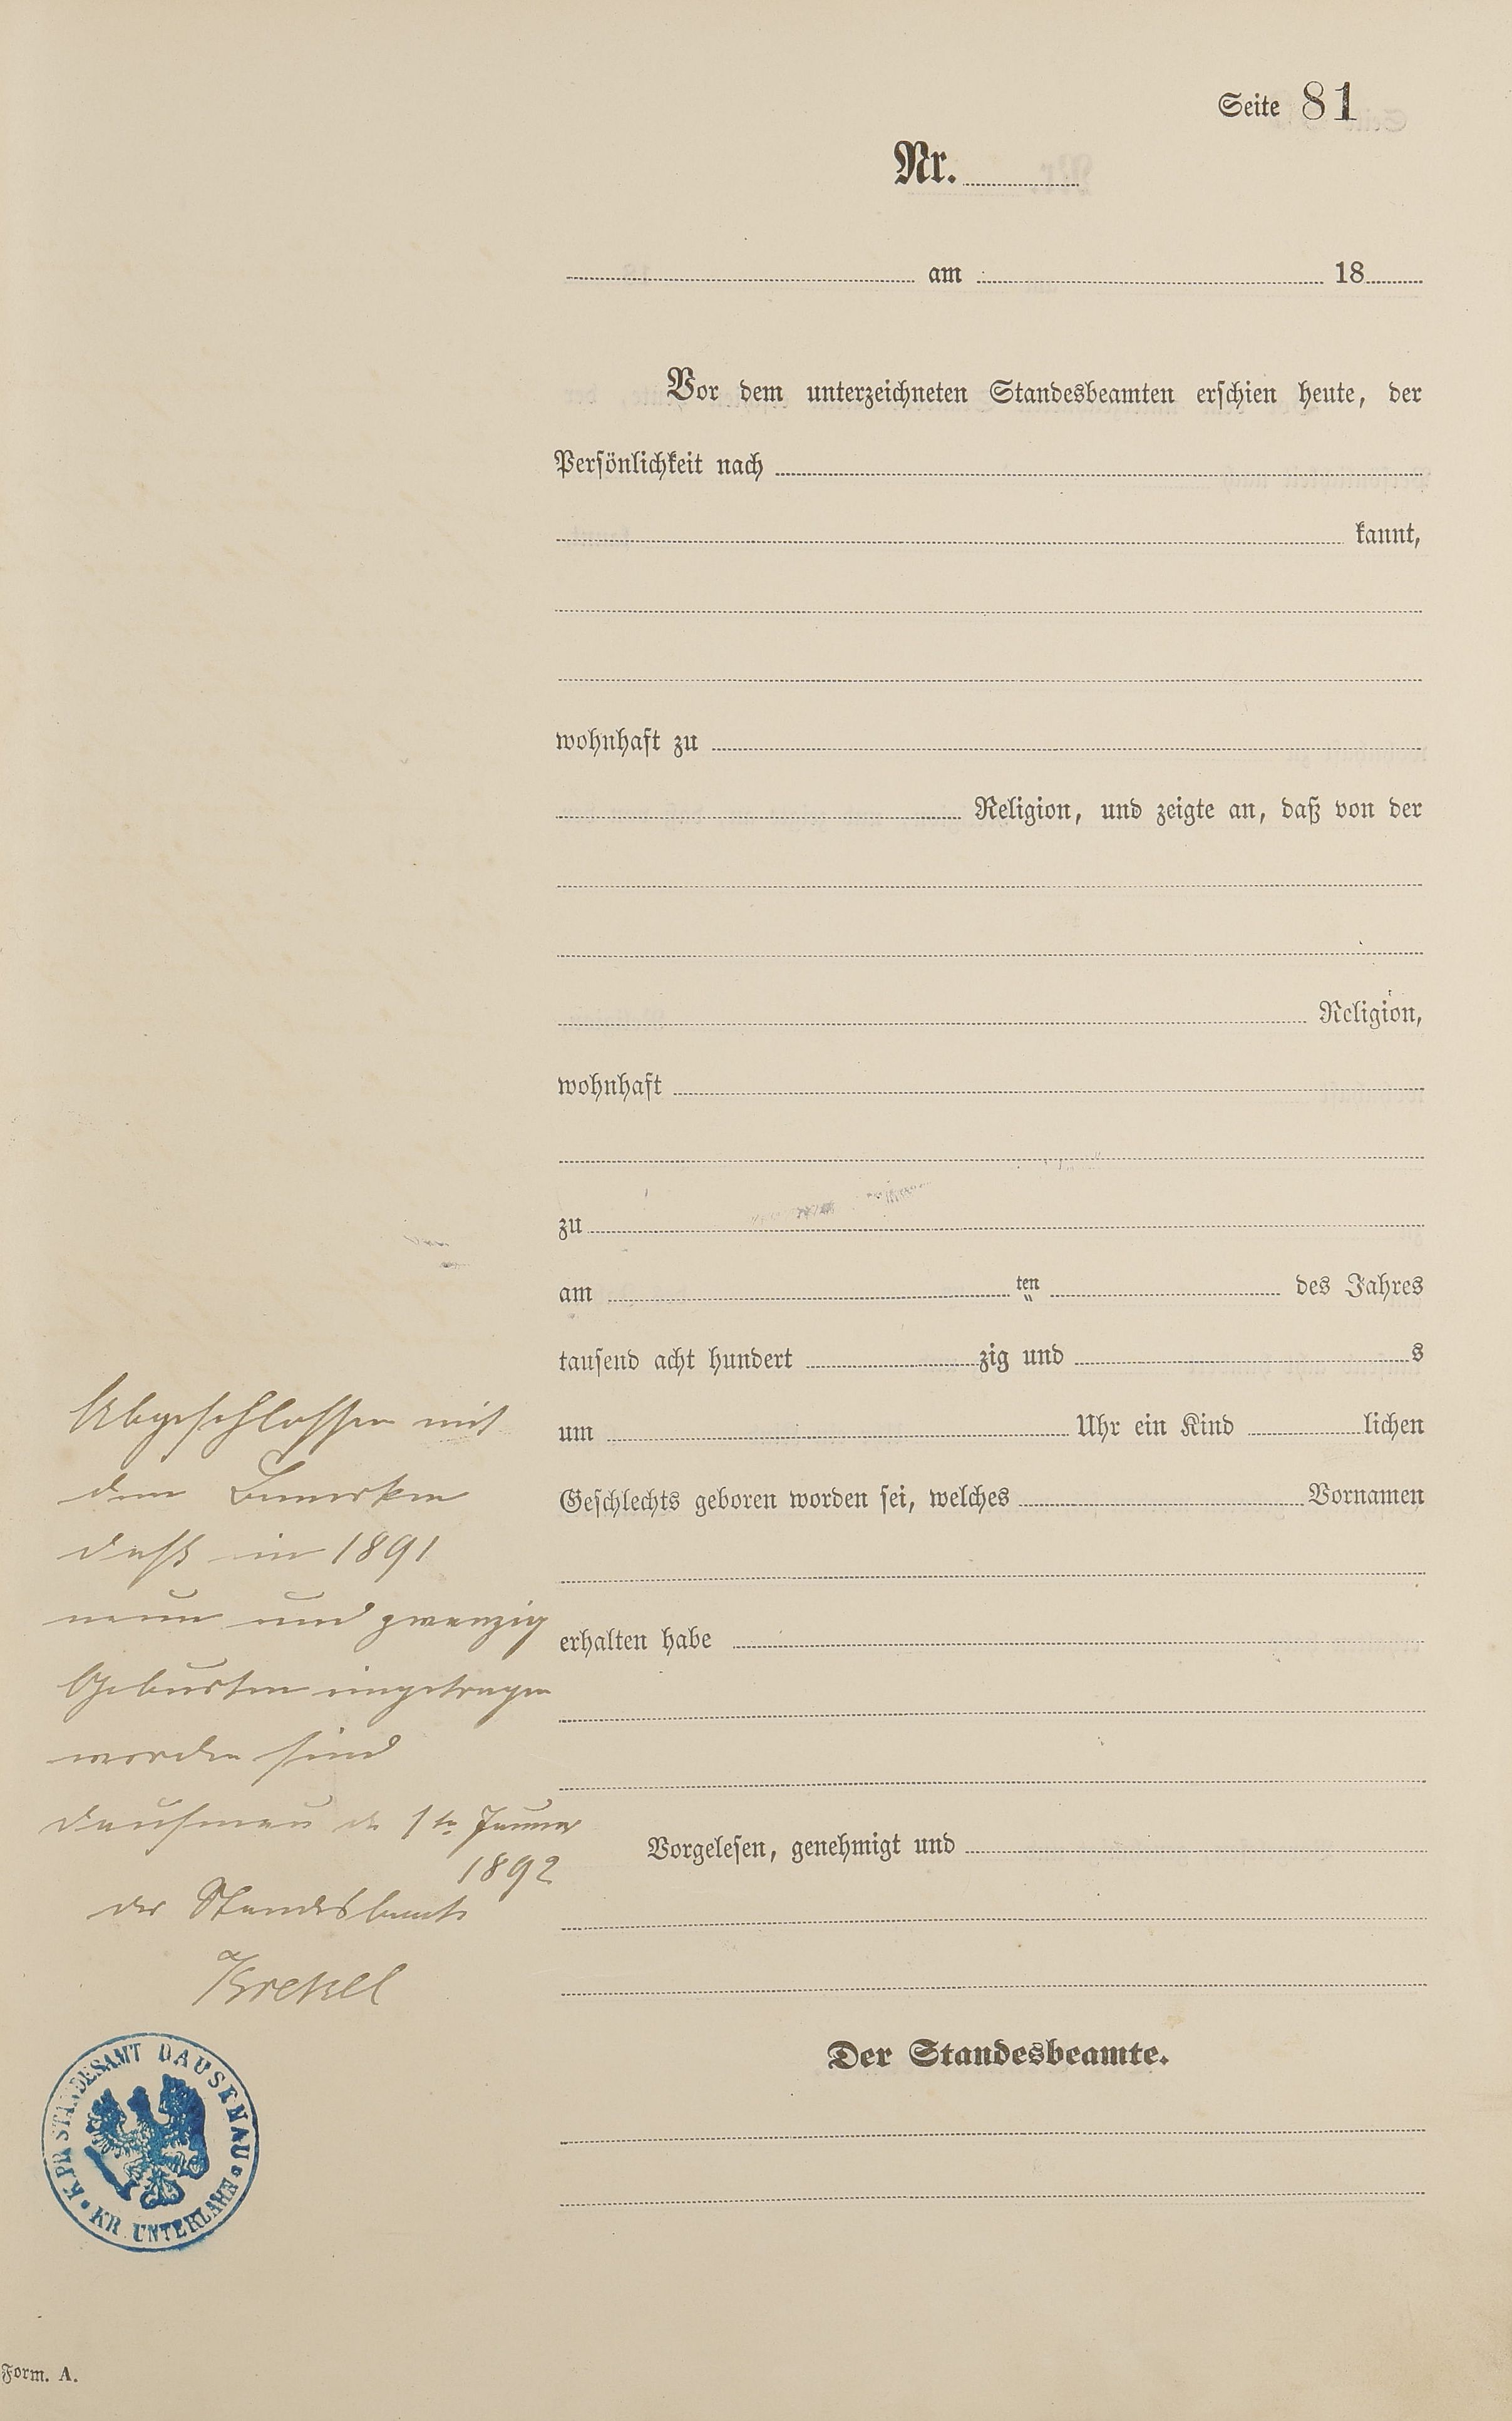 Seite 81
Nr.
am 18
Vor dem unterzeichneten Standesbeamten erschien heute, der
Persönlichkeit nach
kannt,
wohnhaft zu
Religion, und zeigte an, daß von der
Religion,
wohnhaft
zu
am ten des Jahres
tausend acht hundert zig und s
um Uhr ein Kind lichen
Geschlechts geboren worden sei, welches Vornamen
erhalten habe
Vorgelesen, genehmigt und
Der Standesbeamte.
Abgeschlossen mit
dem Bemerken
daß in 1891
neun und zwanzig
Geburten eingetragen
worden sind
Dausenau d 1ten Januar
1892
der Standesbeamte
Krekel
K. PR. STANDESAMT DAUSENAU
KR. UNTERLAHN
Form. A.